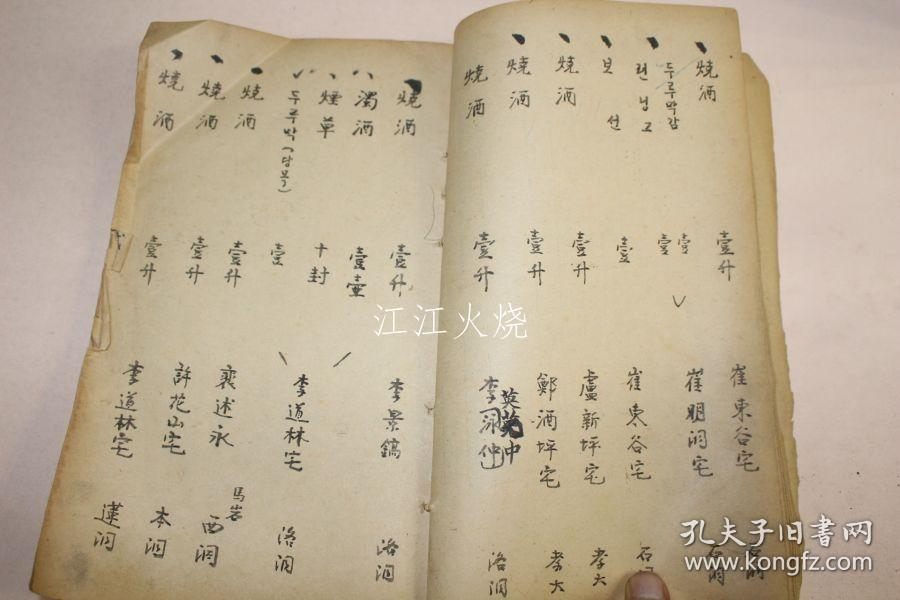 燒酒 壹升 崔東谷宅
두루막감 壹
련닝그 壹 崔明洞宅
보선 壹 崔東谷宅 石洞
燒酒 壹升 盧新坪宅 孝大
燒酒 壹升 鄭酒坪宅 孝大
燒酒 壹升 李泳仲 英中 洛洞
燒酒 壹升 李景鎬 洛洞
濁酒 壹壷
煙草 十封 李道林宅 洛洞
두루막(당목) 壹
燒酒 壹升 裵述永 馬岩 西洞
燒酒 壹升 許花山宅 本洞
燒酒 壹升 李道林宅 蓮洞
江江火烧
孔夫子旧书网
www.kongfz.com